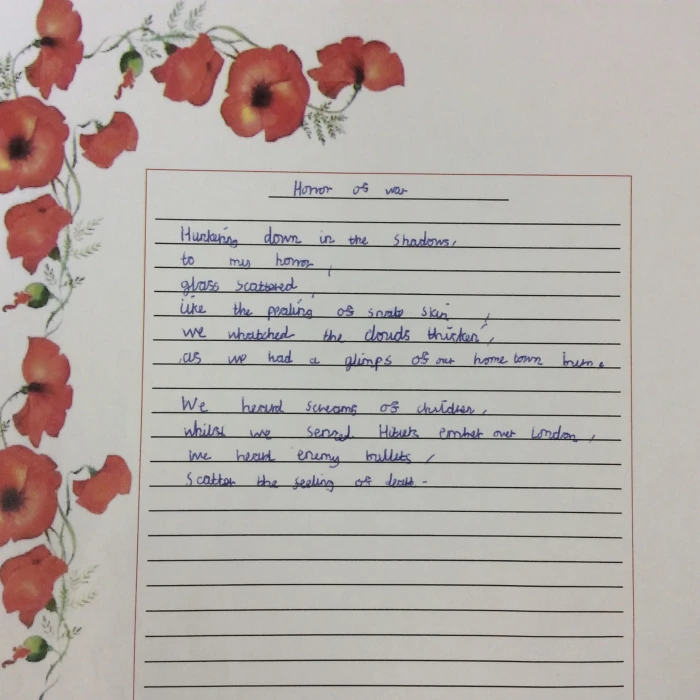 Horror of war
Hunkering down in the shadows,
to my horror,
glass scattered,
like the pealing of snake skin,
we whatched the clouds thicken,
as we had a glimps of our home town burn.
We heard screams of children,
whilst we sensed Hitlers over London,
we heard enemy bullets,
scatter the feeling of death.